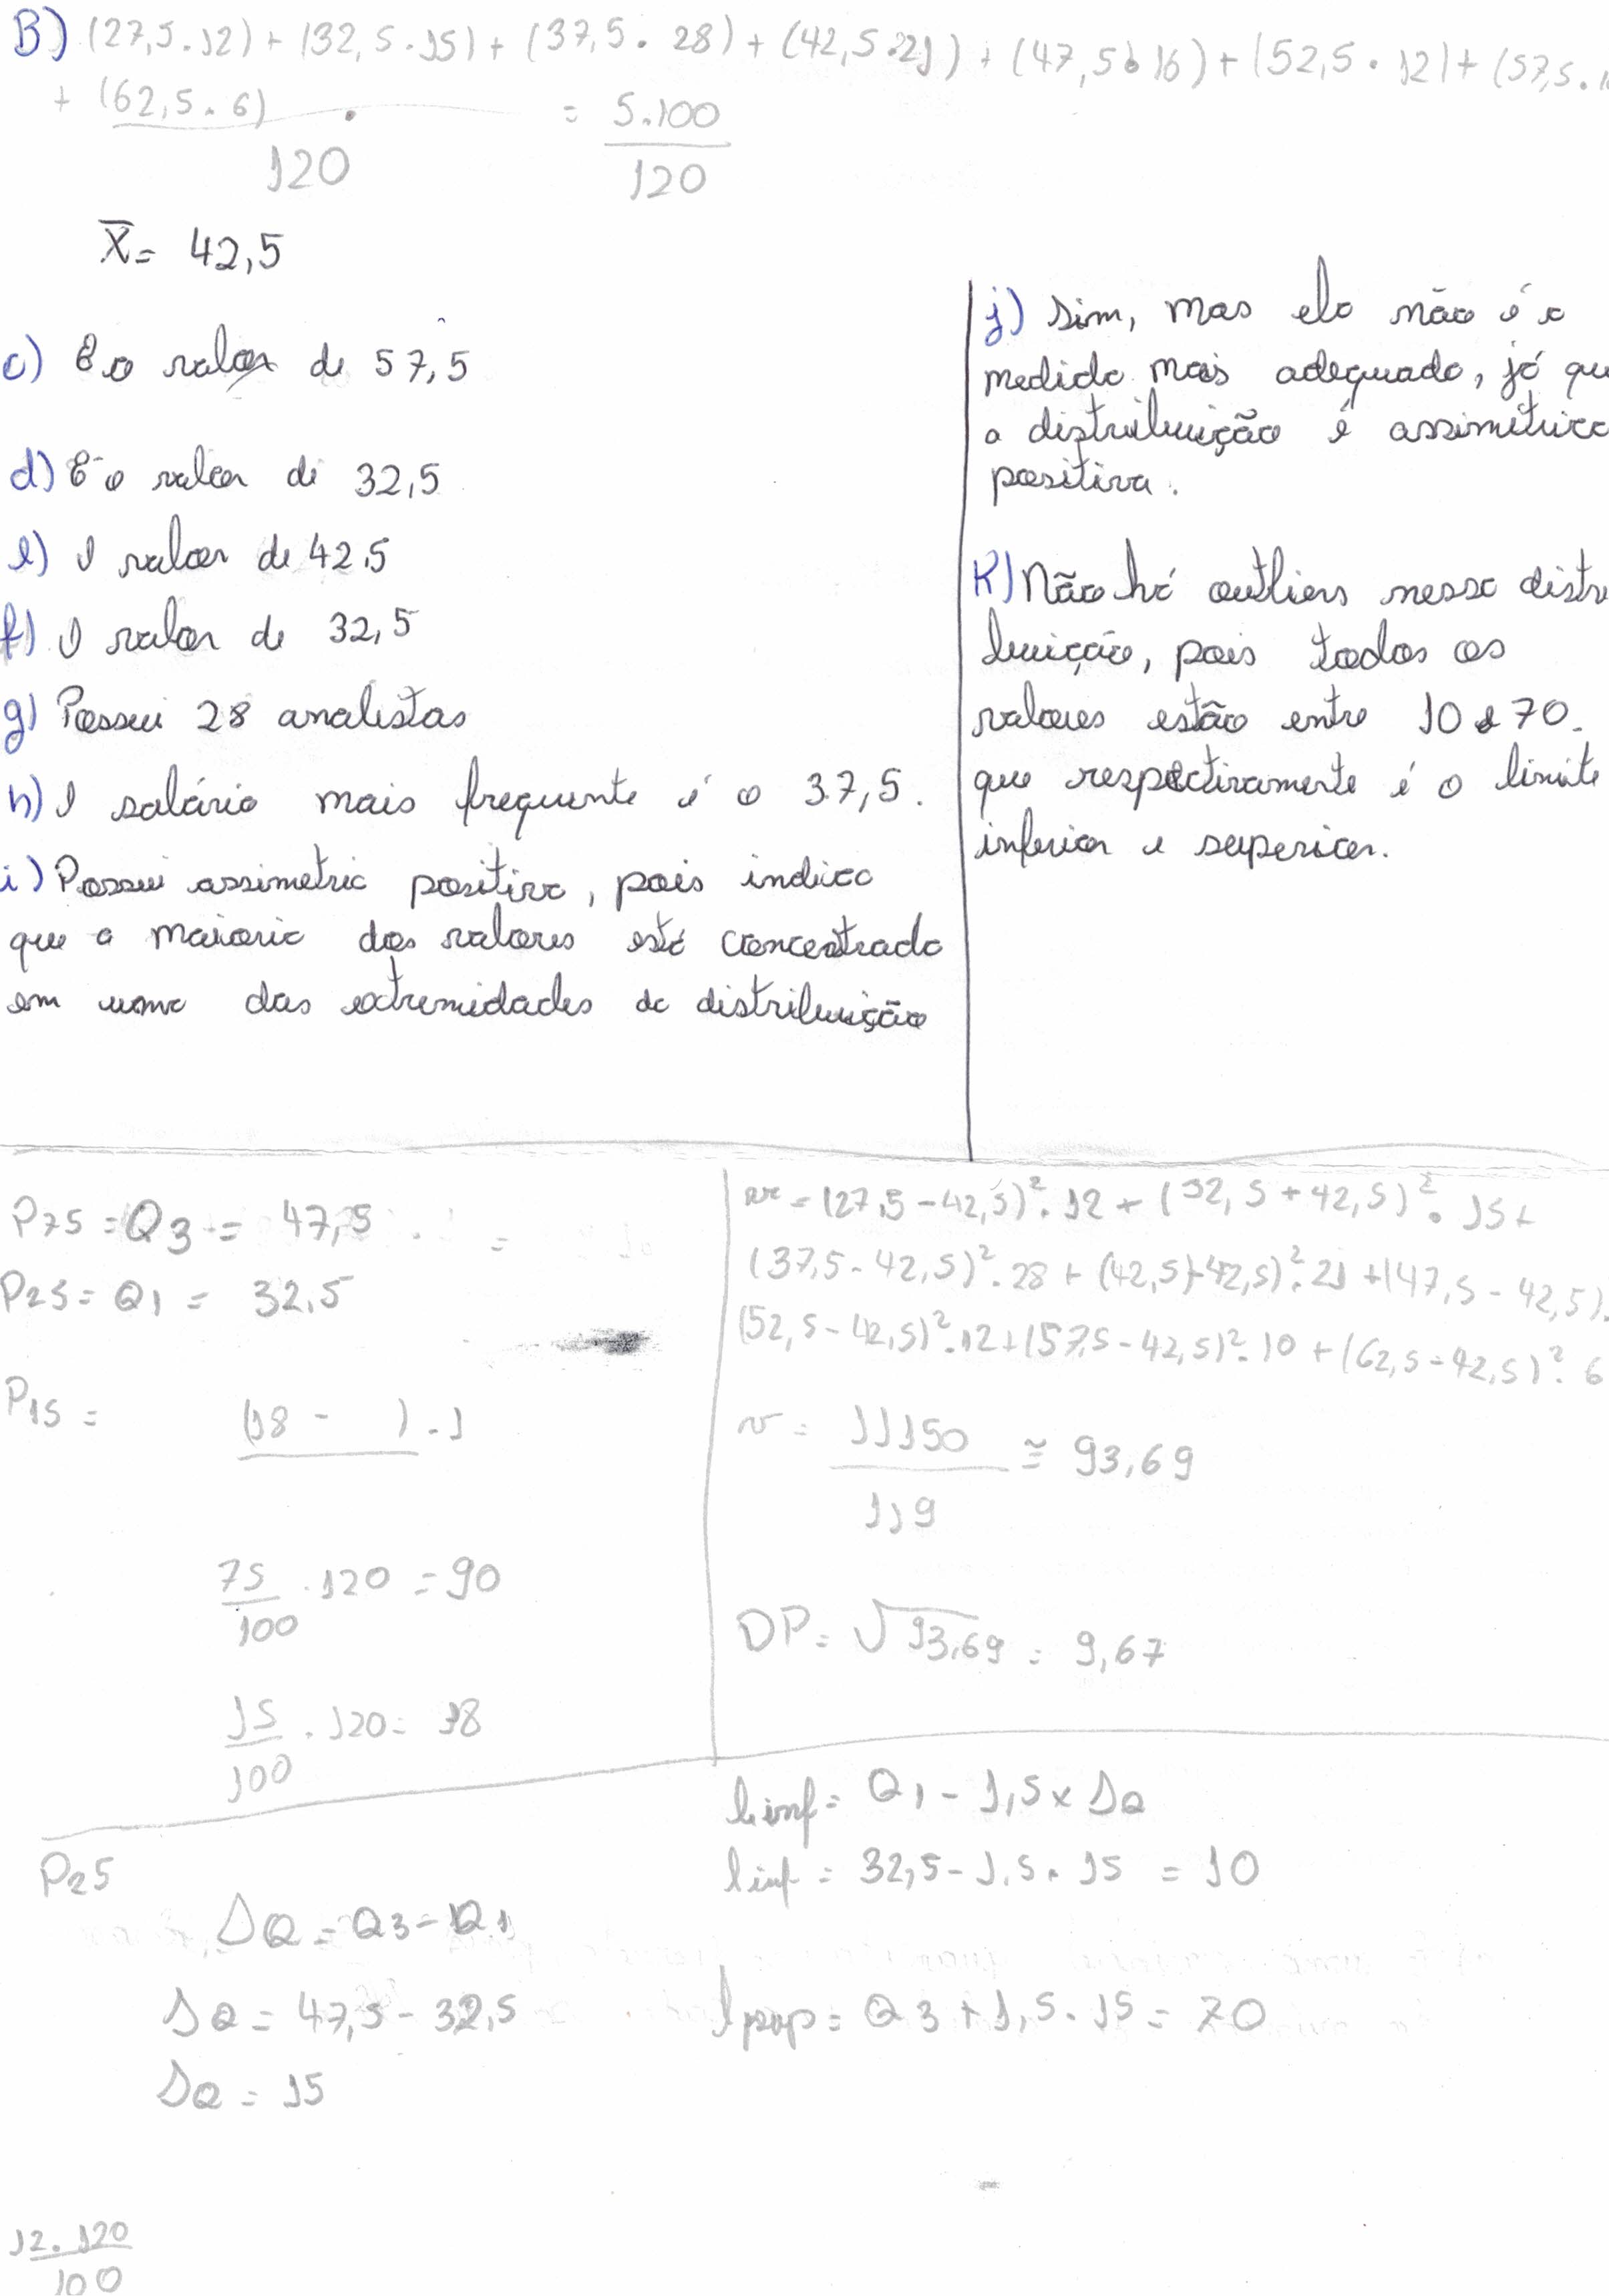 B) (27,5.12) + (32,5.15) + (37,5. 28) + (42,5.21) + (47,5.16) + (52,5. 12) + (57,5.1
+ (62,5.6) = 5.100
120 120
X̅= 42,5
c) É o valor de 57,5
d) É o valor de 32,5
e) O valor de 42,5
f) O valor de 32,5
g) Possui 28 analistas
h) O salário mais frequente é o 37,5.
i) Possui assimetria positiva, pois indica
que a maioria dos valores está concentrada
em uma das extremidades da distribuição
j) Sim, mas ela não é a
medida mais adequada, já que
a distribuição é assimétrica
positiva.
K) Não há outliers nessa distri
buição, pois todos os
valores estão entre 10 e 70.
que respectivamente é o limite
inferior e superior.
P75 = Q3 = 47,5
P25 = Q1 = 32,5
P15 = (18 - ) . 1
75/100 . 120 = 90
15/100 . 120 = 18
var = (27,5 - 42,5)². 12 + (32,5 + 42,5)². 15 +
(37,5 - 42,5)². 28 + (42,5 - 42,5)². 21 + (47,5 - 42,5).
(52,5 - 42,5)². 12 + (57,5 - 42,5)². 10 + (62,5 - 42,5)². 6
v = 11150/119 ≅ 93,69
DP = √93,69 = 9,67
P25
ΔQ = Q3 - Q1
ΔQ = 47,5 - 32,5
ΔQ = 15
Linf = Q1 - 1,5 x ΔQ
Linf = 32,5 - 1,5. 15 = 10
Lsup = Q3 + 1,5. 15 = 70
12.120
100